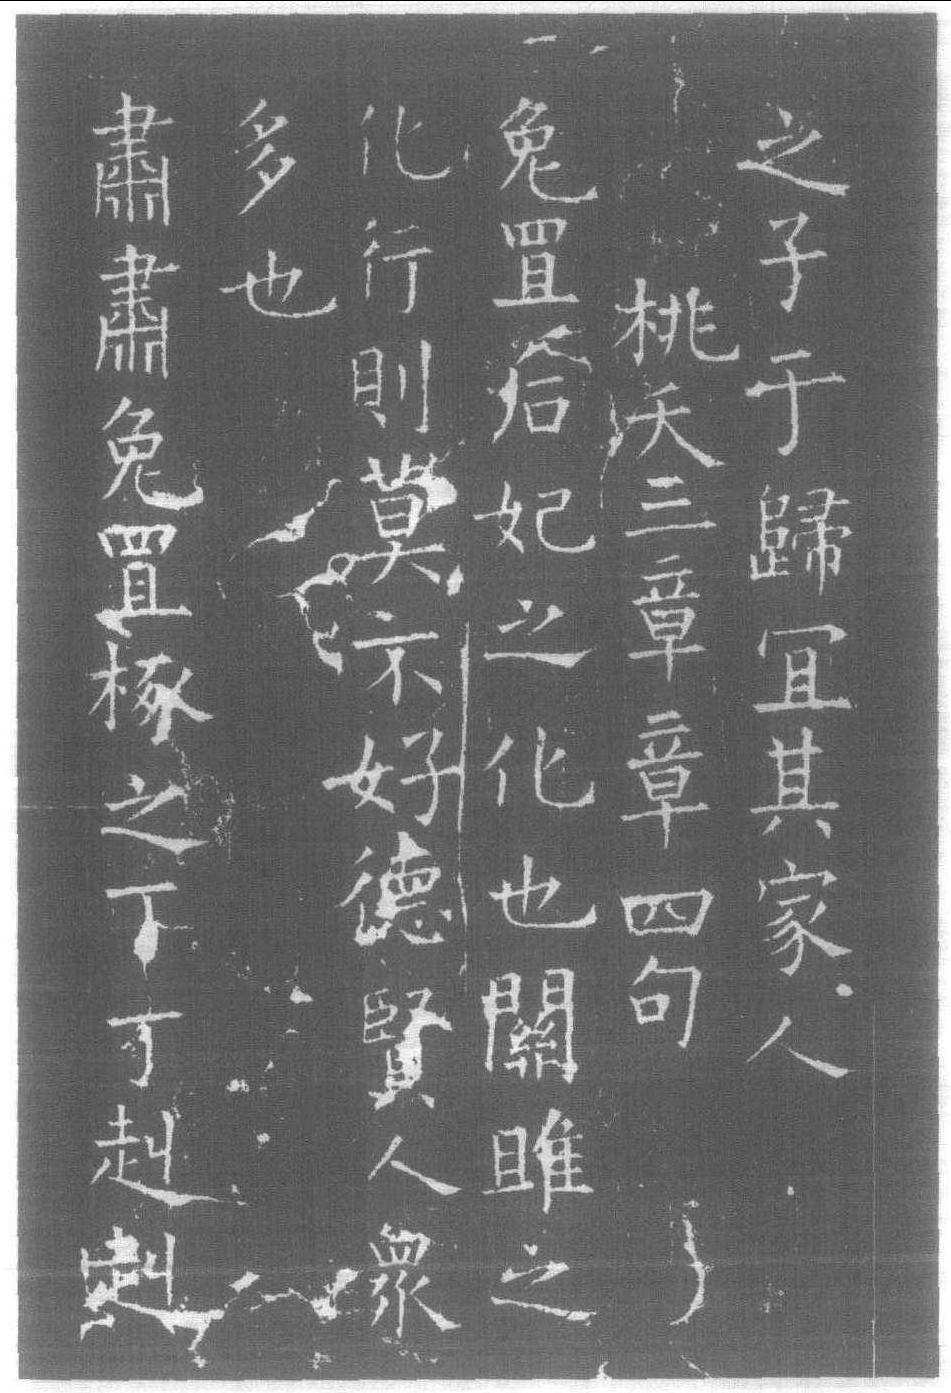 之子于歸宜其家人
桃夭三章章四句
兔罝后妃之化也關雎之
化行則莫不好德賢人眾
多也
肅肅兔罝椓之丁丁赳赳